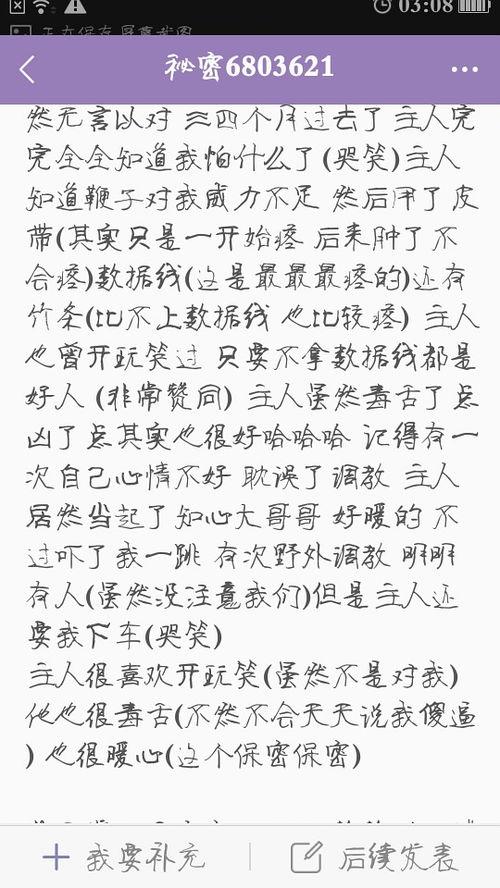 03:08
正在保存屏幕截图
秘密6803621
然无言以对 三四个月过去了 主人完
完全全知道我怕什么了(哭笑)主人
知道鞭子对我威力不足 然后用了皮
带(其实只是一开始疼 后来肿了不
会疼)数据线(这是最最最疼的)还有
竹条(比不上数据线 也比较疼) 主人
也曾开玩笑过 只要不拿数据线都是
好人 (非常赞同) 主人虽然毒舌了点
凶了点其实也很好哈哈哈 记得有一
次自己心情不好 耽误了调教 主人
居然当起了知心大哥哥 好暖的 不
过吓了我一跳 有次野外调教 明明
有人(虽然没注意我们)但是主人还
要我下车(哭笑)
主人很喜欢开玩笑(虽然不是对我)
他也很毒舌(不然不会天天说我傻逼
) 也很暖心(这个保密保密)
我要补充
后续发表